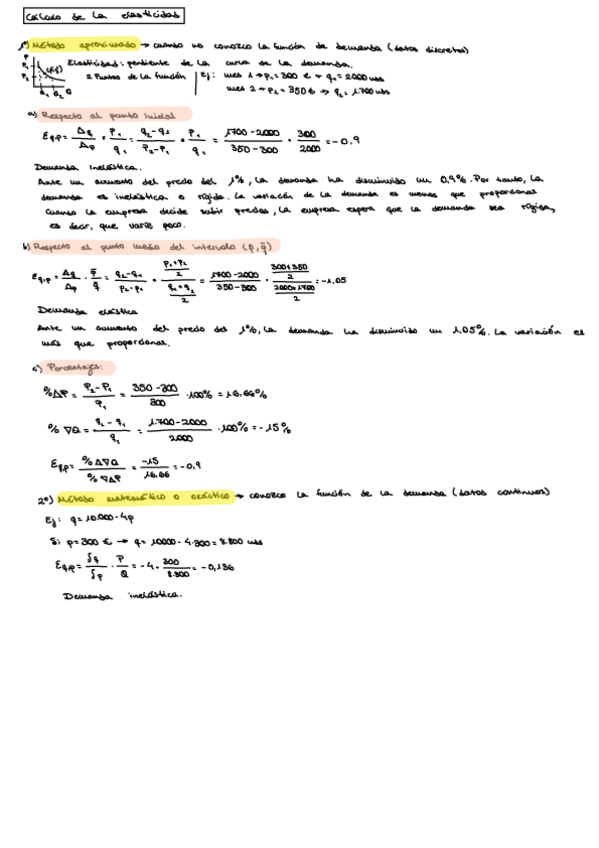 Cálculo de la elasticidad
1º) Método aproximado → cuando no conozco la función de demanda (datos discretos)
Elasticidad: pendiente de la curva de la demanda.
2 Puntos de la función | Ej: mes 1 → p₁ = 300 € → q₁ = 2000 uds
mes 2 → p₂ = 350 € → q₂ = 1.700 uds
P
P₁
P₂
q₁ q₂ Q
a) Respecto al punto inicial
Eq,p = Δq/Δp · P₁/q₁ = q₂-q₁/P₂-P₁ · P₁/q₁ = 1700-2000/350-300 · 300/2000 = -0,9
Demanda inelástica.
Ante un aumento del precio del 1%, la demanda ha disminuido un 0,9%. Por tanto, la
demanda es inelástica o rígida. La variación de la demanda es menos que proporcional
Cuando la empresa decide subir precios, la empresa espera que la demanda sea rígida,
es decir, que varíe poco.
b) Respecto al punto medio del intervalo (p̄, q̄)
Eq,p = Δq/Δp · p̄/q̄ = q₂-q₁/P₂-P₁ · (P₁+P₂/2)/(q₁+q₂/2) = 1700-2000/350-300 · (300+350/2)/(2000+1700/2) = -1,05
Demanda elástica
Ante un aumento del precio del 1%, la demanda ha disminuido un 1,05%. La variación es
más que proporcional.
c) Porcentajes:
%ΔP = P₂-P₁/P₁ = 350-300/300 · 100% = 16.66%
% ∇Q = q₂-q₁/q₁ = 1.700-2000/2000 · 100% = -15%
Eq,p = %Δ∇Q/%∇ΔP = -15/16.66 = -0,9
2º) Método matemático o exáctico → conozco la función de la demanda (datos continuos)
Ej: q = 10.000 - 4p
Si p = 300 € → q = 10000 - 4·300 = 8.800 uds
Eq,p = δq/δp · P/Q = -4 · 300/8.800 = -0,136
Demanda inelástica.